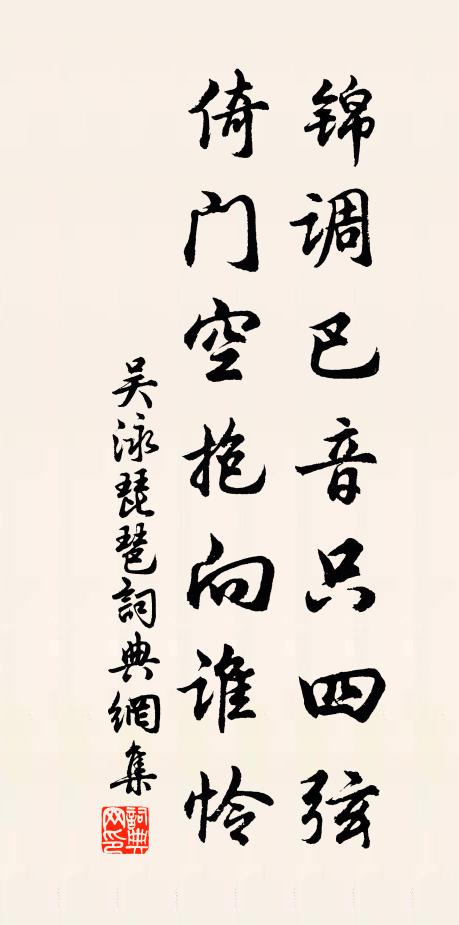 锦调巴音只四弦
倚门空抱向谁怜
吴泳琵琶詞典網集
詞典网印